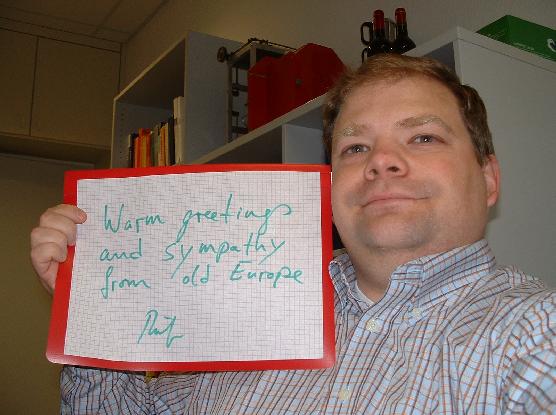 Warm greetings
and sympathy
from old Europe